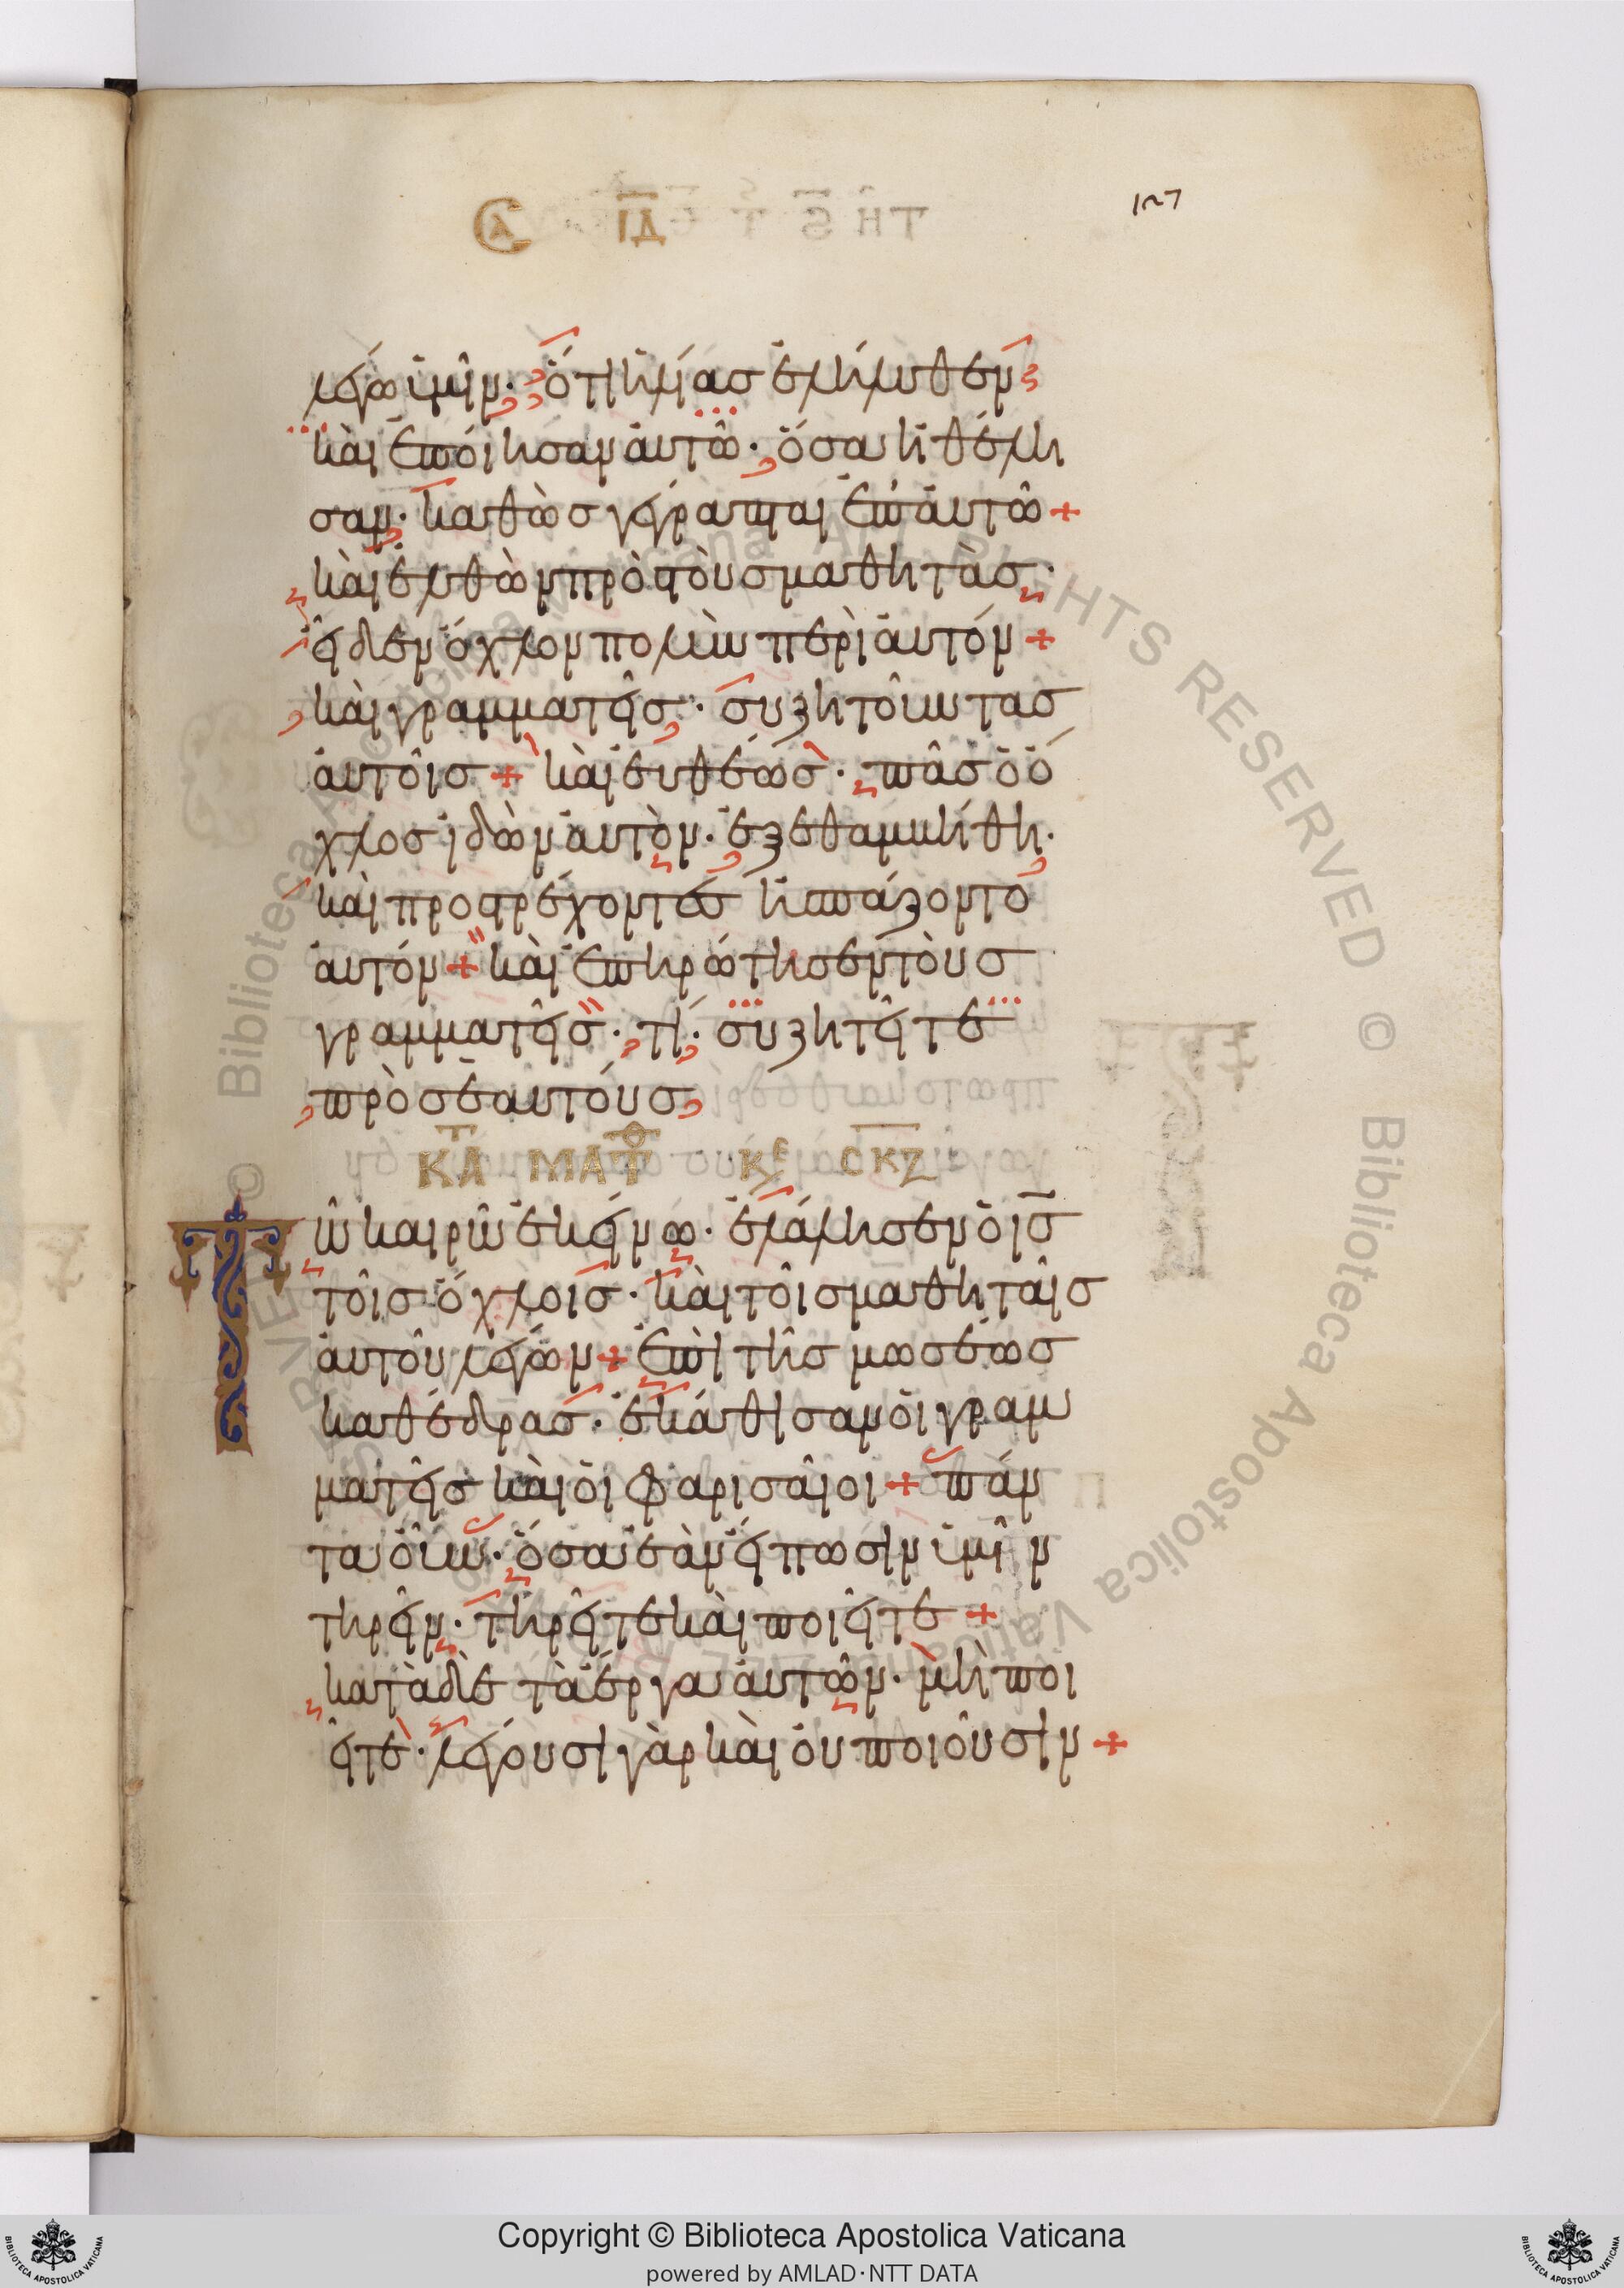 127
ΙΔ
λέγω ὑμῖν· ὅτι ἠλίας ἐλήλυθεν
καὶ ἐποίησαν αὐτῶ· ὅσα ἠθέλη
σαν· καθὼς γέγραπται ἐπ' αὐτῶ +
καὶ ἐλθὼν πρὸς τοὺς μαθητὰς·
εἶδεν ὄχλον πολὺν περὶ αὐτόν +
καὶ γραμματεῖς· συζητοῦντας
αὐτοῖς + καὶ εὐθέως· πᾶς ὁ ὄ
χλος ἰδὼν αὐτὸν· ἐξεθαμβήθη·
καὶ προστρέχοντες ἠσπάζοντο
αὐτόν + καὶ ἐπηρώτησεν τοὺς
γραμματεῖς· τί· συζητεῖτε
πρὸς ἑαυτούς
ΚΑΤ ΜΑΤΘ ΚΕ CΚΖ
Τ
ῶ καιρῶ ἐκείνω· ἐλάλησεν ὁ ις
τοῖς ὄχλοις· καὶ τοῖς μαθηταῖς
αὐτοῦ λέγων + ἐπὶ τῆς μωσέως
καθέδρας· ἐκάθισαν οἱ γραμ
ματεῖς καὶ οἱ φαρισαῖοι + πάν
τα οὖν· ὅσα ἐὰν εἴπωσιν ὑμῖν
τηρεῖν· τηρεῖτε καὶ ποιεῖτε +
κατὰ δὲ τὰ ἔργα αὐτῶν· μὴ ποι
εῖτε· λέγουσι γὰρ καὶ οὐ ποιοῦσιν +
© Biblioteca Apostolica Vaticana ALL RIGHTS RESERVED
Copyright © Biblioteca Apostolica Vaticana
powered by AMLAD·NTT DATA
BIBLIOTECA APOSTOLICA VATICANA
BIBLIOTECA APOSTOLICA VATICANA